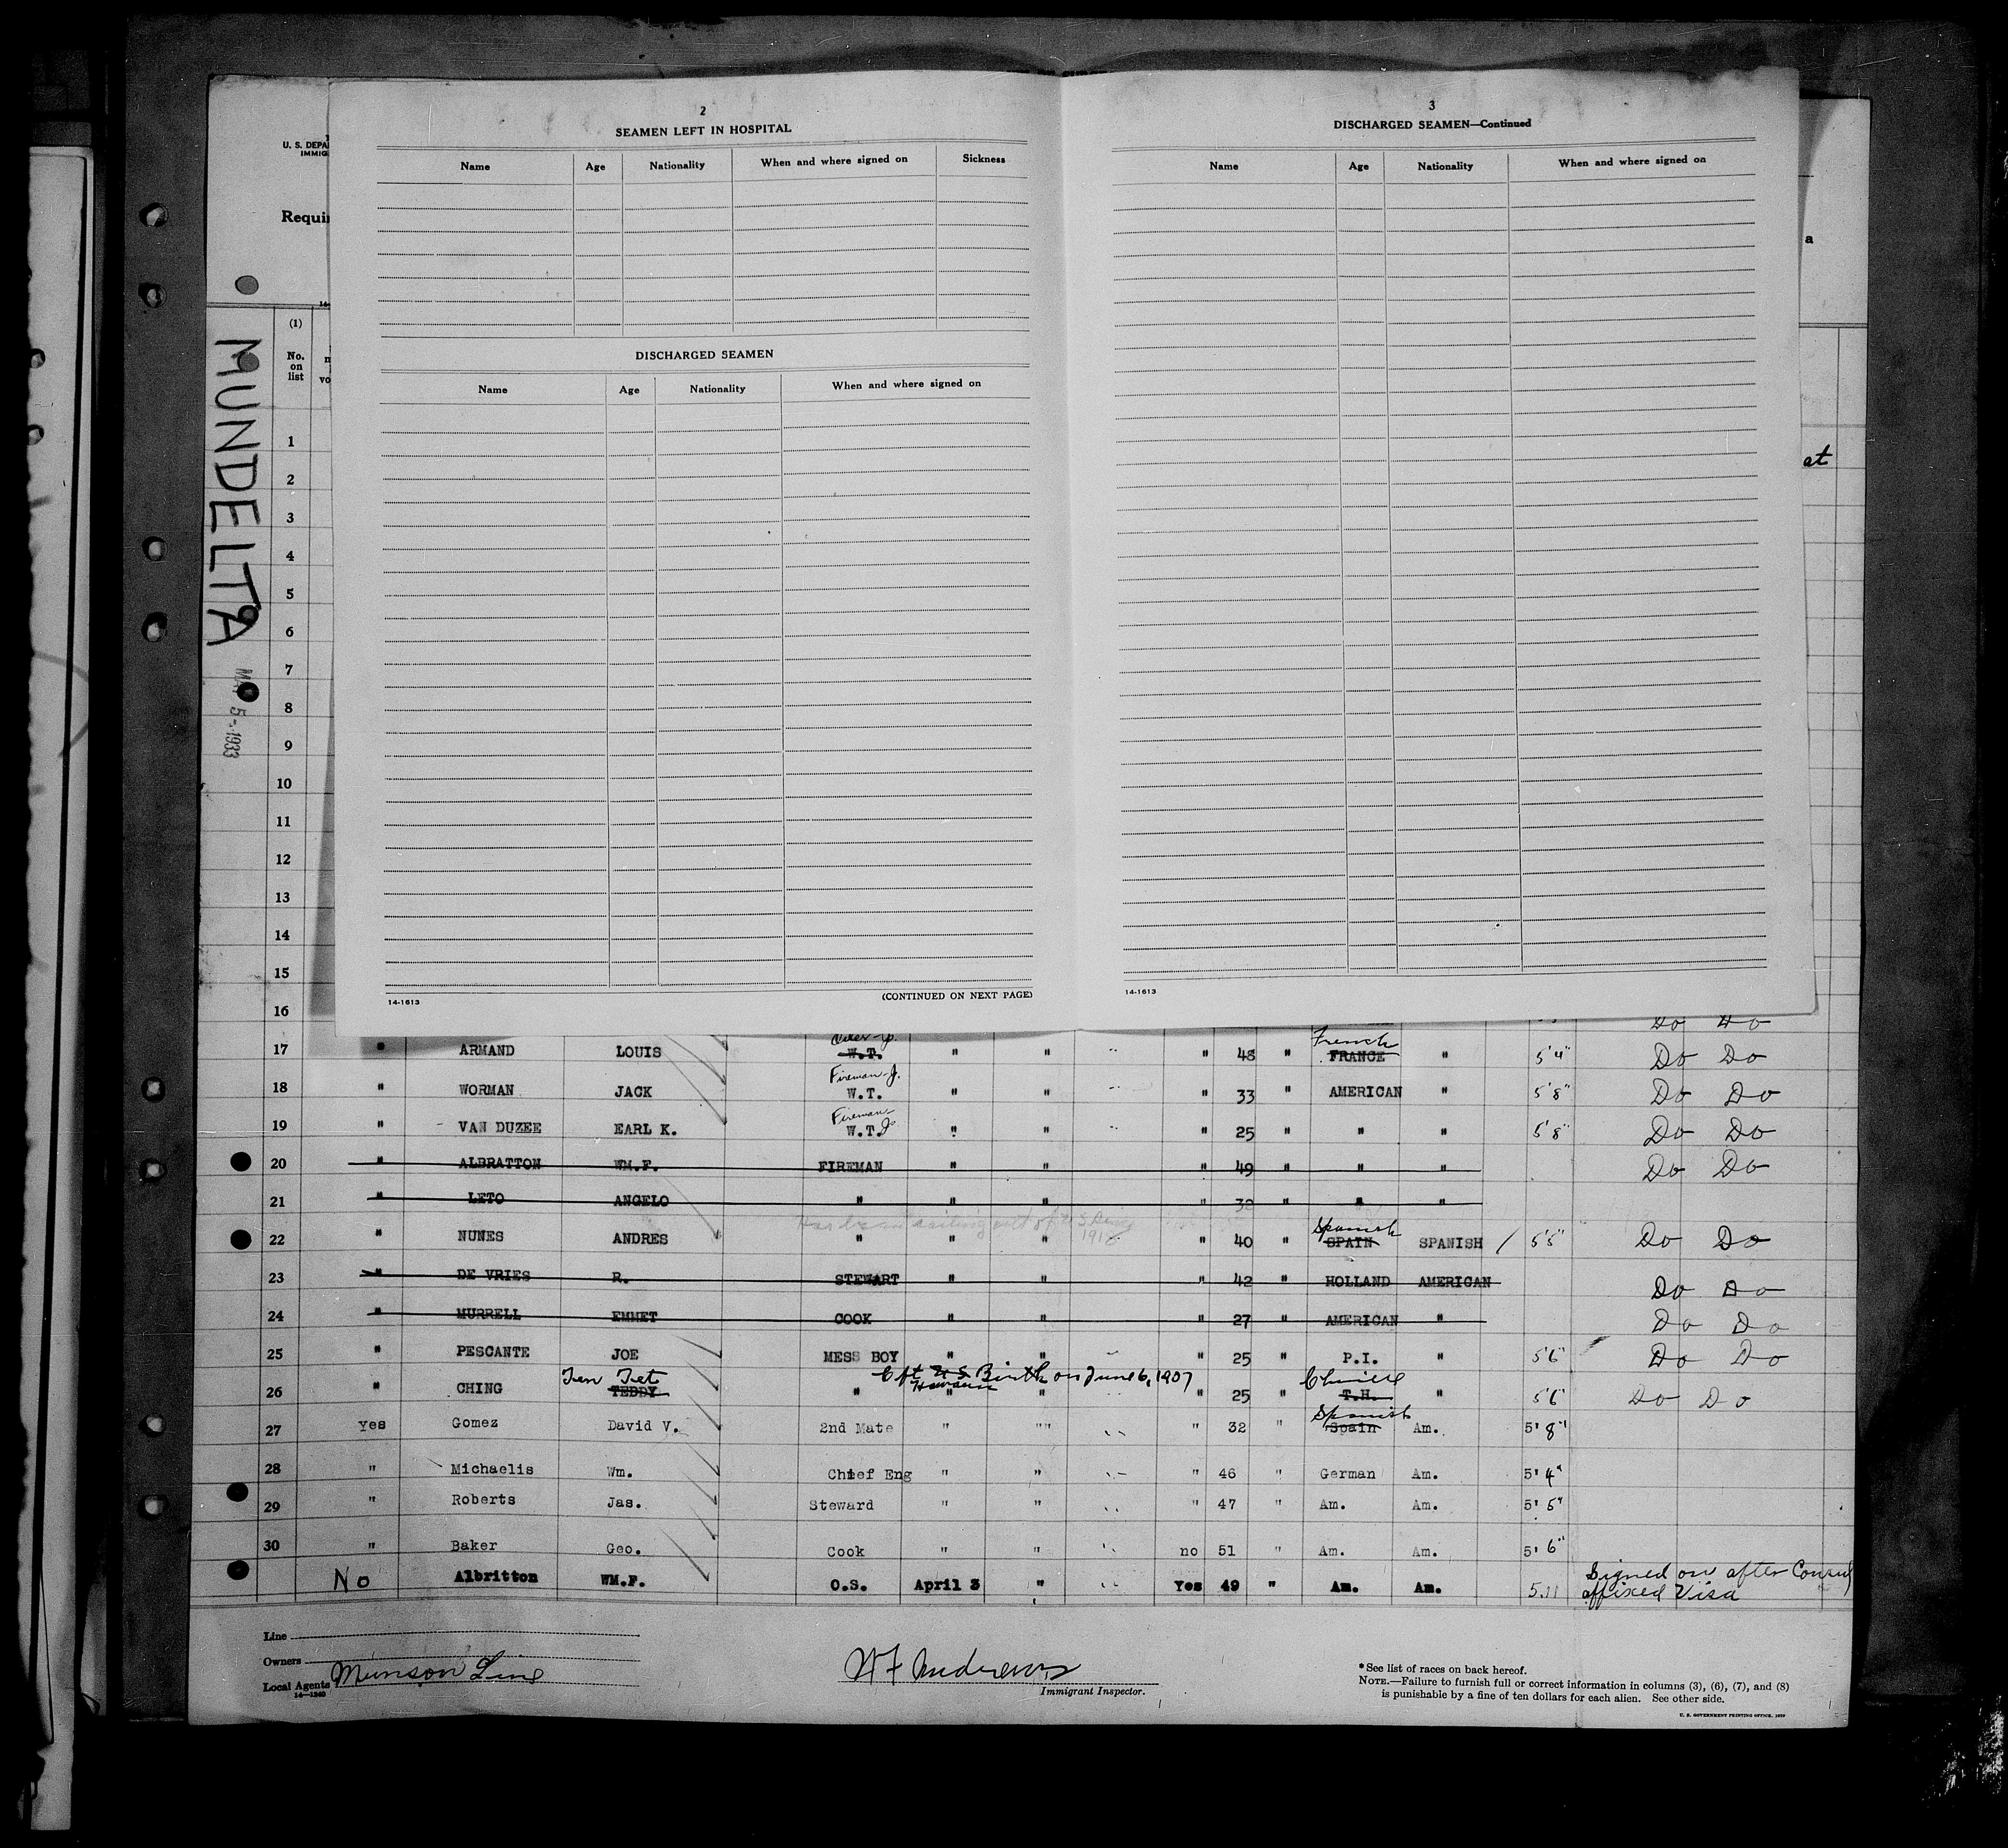 U. S. DEPA
IMMIG
Requir
MUNDELTA
5-1933
(1)
No.
on
list
vo
a
at
2
SEAMEN LEFT IN HOSPITAL
Name Age Nationality When and where signed on Sickness
DISCHARGED SEAMEN
Name Age Nationality When and where signed on
14-1613 (CONTINUED ON NEXT PAGE)
3
DISCHARGED SEAMEN—Continued
Name Age Nationality When and where signed on
14-1613
1
2
3
4
5
6
7
8
9
10
11
12
13
14
15
16 Do Do
French
17 " ARMAND LOUIS W.T. " " " 48 " FRANCE " 5'4" Do Do
Fireman J.
18 " WORMAN JACK W.T. " " " 33 " AMERICAN " 5'8" Do Do
Fireman
19 " VAN DUZEE EARL K. W.T. " " " 25 " " " 5'8" Do Do
20 " ALBRATTON WM.F. FIREMAN " " " 49 " " " Do Do
21 " LETO ANGELO " " " " 38 " " "
Spanish
22 " NUNES ANDRES " " " " 40 " SPAIN SPANISH / 5'5" Do Do
23 " DE VRIES R. STEWART " " " 42 " HOLLAND AMERICAN Do Do
24 " MURRELL EMMET COOK " " " 27 " AMERICAN " Do Do
25 " PESCANTE JOE MESS BOY " " " 25 " P.I. " 5'6" Do Do
Cft U S Birth on June 6, 1907 Chinese
Hawaiian
26 " CHING TEDDY " " " " 25 " T.H. " 5'6" Do Do
Spanish
27 Yes Gomez David V. 2nd Mate " "" " 32 " Spain Am. 5' 8"
28 " Michaelis Wm. Chief Eng " " " 46 " German Am. 5' 4"
29 " Roberts Jas. Steward " " " 47 " Am. Am. 5' 5"
30 " Baker Geo. Cook " " no 51 " Am. Am. 5' 6"
No Albritton WM.F. O.S. April 3 " Yes 49 " Am. Am. 5.11 Signed on after Consul
affixed Visa
Line
Owners
Local Agents Munson Line
14—1240
W F Andrews
Immigrant Inspector.
* See list of races on back hereof.
NOTE.—Failure to furnish full or correct information in columns (3), (6), (7), and (8)
is punishable by a fine of ten dollars for each alien. See other side.
U. S. GOVERNMENT PRINTING OFFICE, 1929